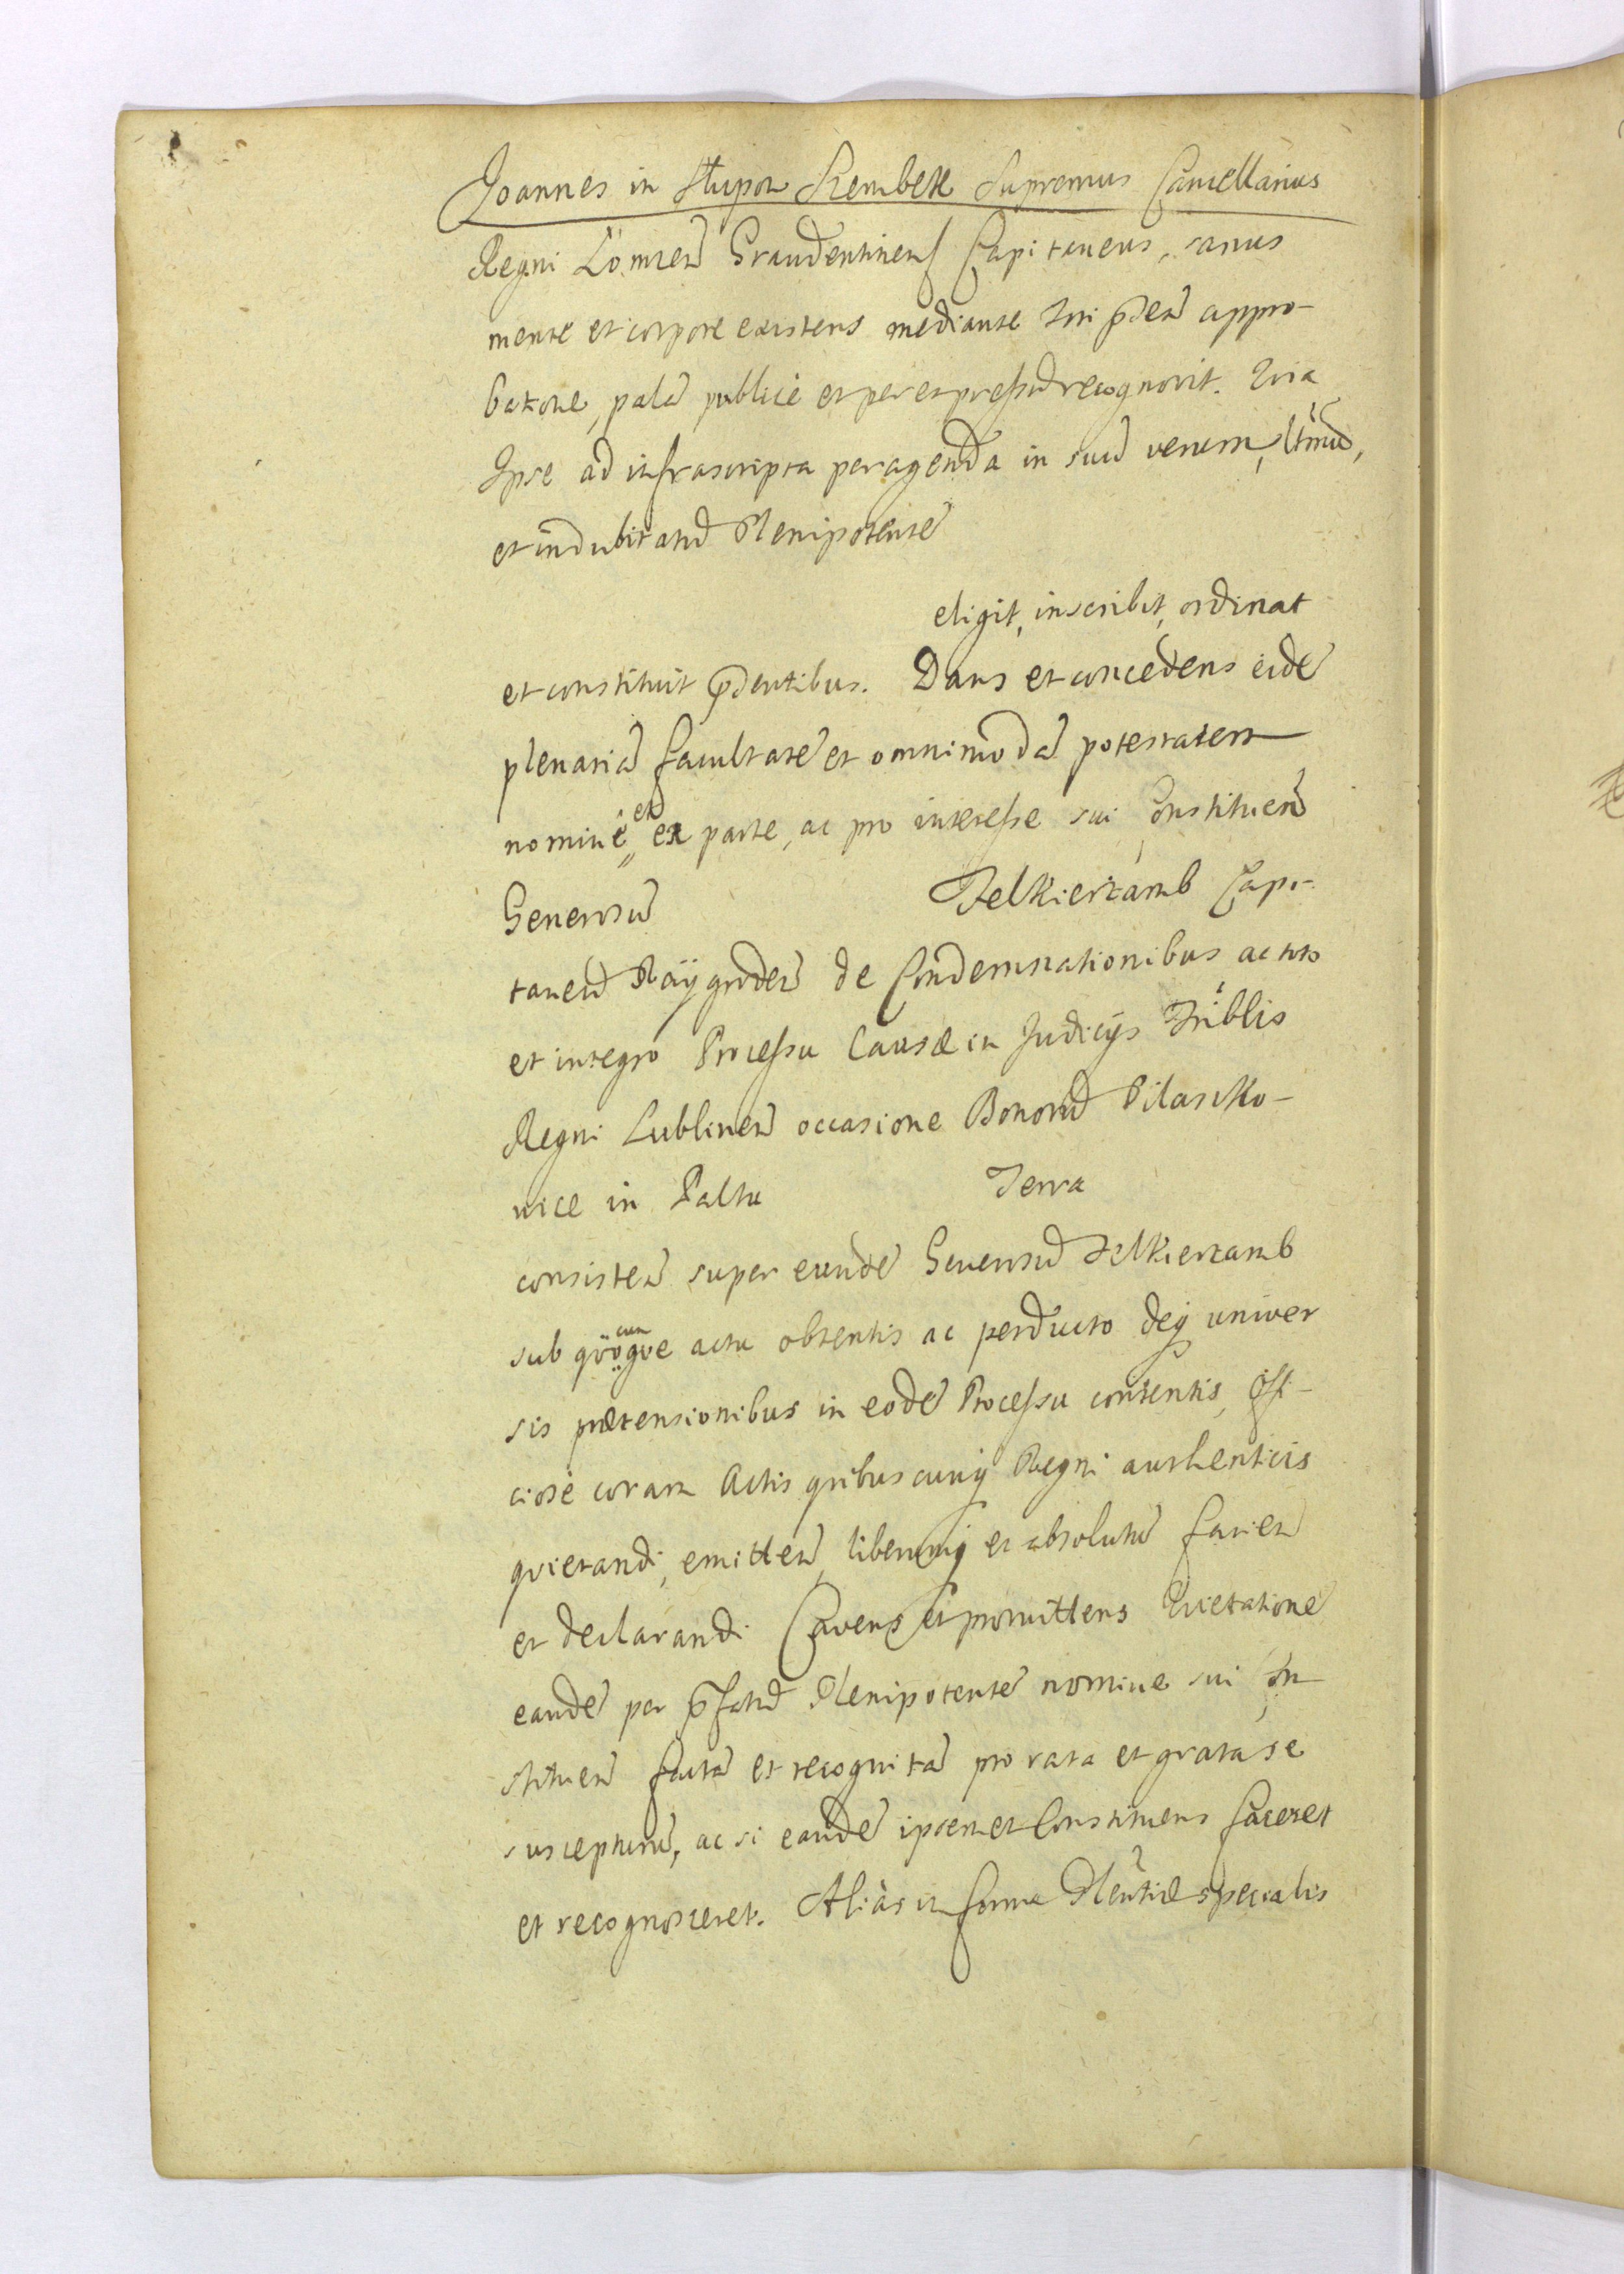 Joannes in Stupow Szembek Supremus Cancellarius
Regni Lomzeñ Graudentineñ Capitaneus, sanus
mente et corpore existens mediante sui p̃deñ appro-
batõne, palã publicè et per expressũ recognovit. Qria
Ipse ad infrascripta peragenda in suũ verum, ltimũ,
et indubitatũ Plenipotentẽ
eligit, inscribit, ordinat
et constituit p̃dentibus. Dans et concedens eidẽ
plenariã facultatẽ et omnimodã potestatem
nomine et ex parte, ac pro interesse sui Constitueñ
Generosũ Felkierzamb Capi-
taneũ Raygrodeñ de Condemnationibus ac toto
et integro Processu Causæ in Judicijs Triblis
Regni Lublineñ occasione Bonorũ Pilaszko-
vice in Palttu Terra
consisteñ super eundẽ Generosũ Felkierzamb
sub qvocunqve actu obtentis ac perducto deq univer
sis prætensionibus in eodẽ Processu contentis, Offi-
ciosè coram Actis qvibuscunq Regni authenticis
qvietandi, emitteñ, liberumq et absolutũ facieñ
et declarandi Cavens et promittens Qvietationẽ
eandẽ per p̃fatũ Plenipotentẽ nomine sui Con
stitueñ factã et recognitã pro rata et grata se
suscepturũ, ac si eandẽ ipsemet Constituens faceret
et recognosceret. Aliàs in forma Plentiæ specialis